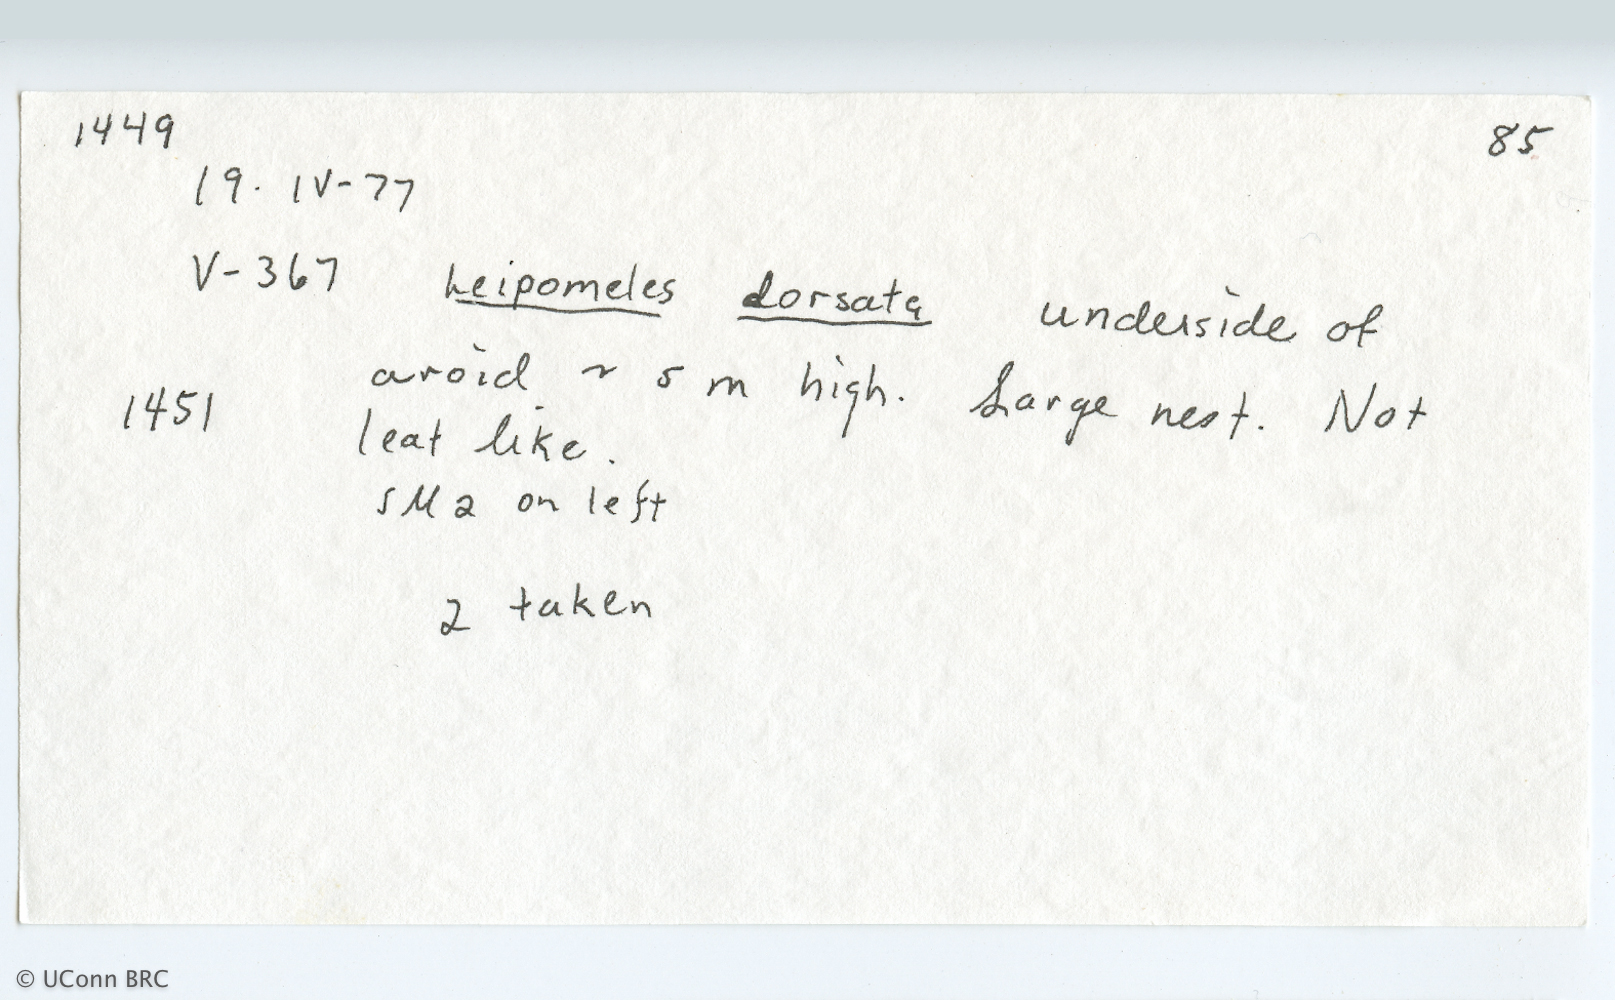 1449
85
19. IV-77
V-367 Leipomeles dorsata underside of
aroid ~ 5 m high. Large nest. Not
1451
leaf like.
SM2 on left
2 taken
© UConn BRC